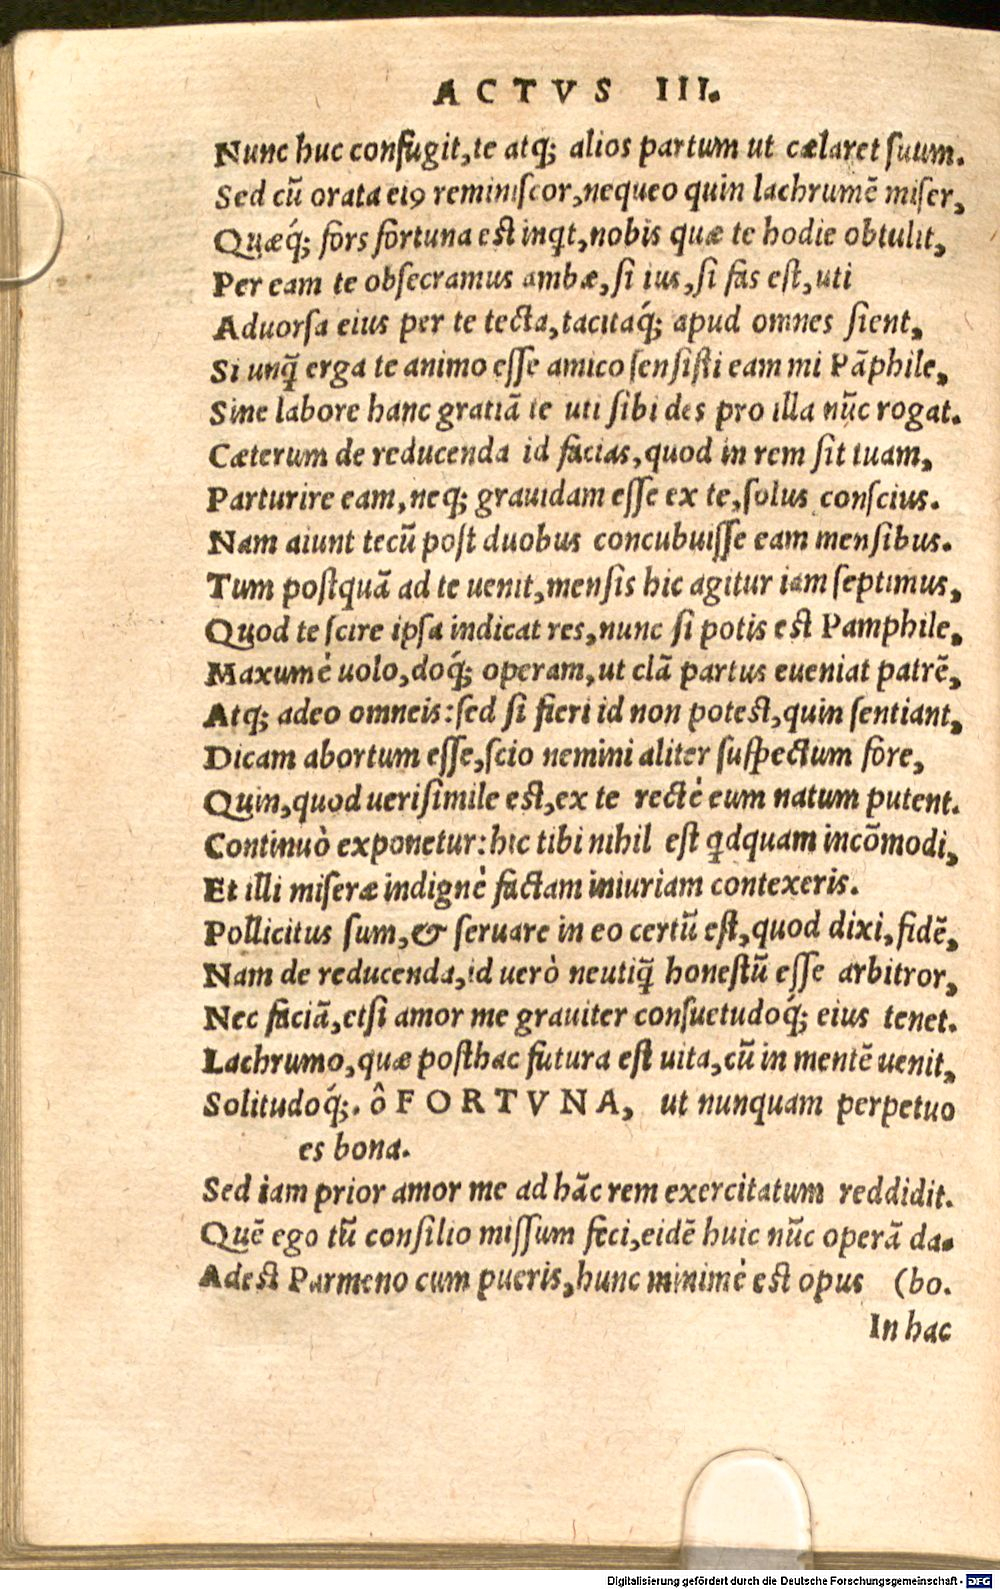 ACTVS III.
Nunc huc confugit, te atq; alios partum ut cælaret suum.
Sed cũ orata eiꝰ reminiscor, nequeo quin lachrumẽ miser,
Quæq́; fors fortuna est inqt, nobis quæ te hodie obtulit,
Per eam te obsecramus ambæ, si ius, si fas est, uti
Aduorsa eius per te tecta, tacitaq́; apud omnes sient,
Si unq̃ erga te animo esse amico sensisti eam mi Pãphile,
Sine labore hanc gratiã te uti sibi des pro illa nũc rogat.
Cæterum de reducenda id facias, quod in rem sit tuam,
Parturire eam, neq; grauidam esse ex te, solus conscius.
Nam aiunt tecũ post duobus concubuisse eam mensibus.
Tum postquã ad te uenit, mensis hic agitur iam septimus,
Quod te scire ipsa indicat res, nunc si potis est Pamphile,
Maxumè uolo, doq́; operam, ut clã partus eueniat patrẽ,
Atq; adeo omneis: sed si fieri id non potest, quin sentiant,
Dicam abortum esse, scio nemini aliter suspectum fore,
Quin, quod uerisimile est, ex te rectè eum natum putent.
Continuò exponetur: hic tibi nihil est qdquam incõmodi,
Et illi miseræ indignè factam iniuriam contexeris.
Pollicitus sum, & seruare in eo certũ est, quod dixi, fidẽ,
Nam de reducenda, id uerò neutiq̃ honestũ esse arbitror,
Nec faciã, etsi amor me grauiter consuetudoq́; eius tenet.
Lachrumo, quæ posthac futura est uita, cũ in mentẽ uenit,
Solitudoq́;. ô FORTVNA, ut nunquam perpetuo
es bona.
Sed iam prior amor me ad hãc rem exercitatum reddidit.
Quẽ ego tũ consilio missum feci, eidẽ huic nũc operã da-
Adest Parmeno cum pueris, hunc minimè est opus (bo.
In hac
Digitalisierung gefördert durch die Deutsche Forschungsgemeinschaft - DFG